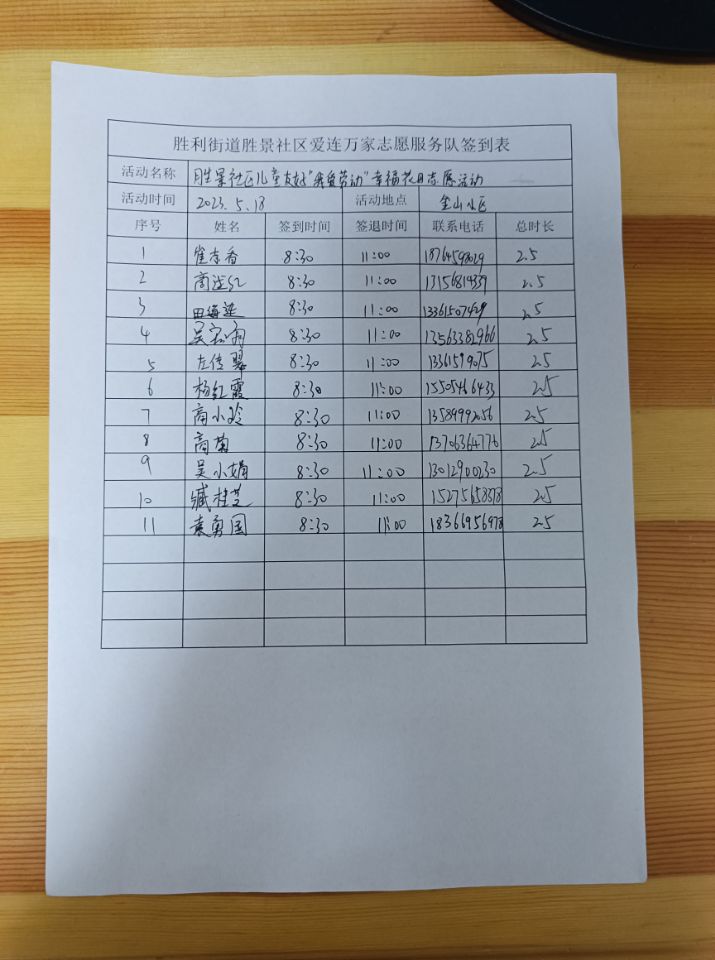 胜利街道胜景社区爱连万家志愿服务队签到表
活动名称 胜景社区儿童友好"我爱劳动"幸福花园志愿活动
活动时间 2023.5.18 活动地点 金山小区
序号 姓名 签到时间 签退时间 联系电话 总时长
1 崔李香 8:30 11:00 18764598029 2.5
2 高 红 8:30 11:00 13156819339 2.5
3 田海莲 8:30 11:00 13361507429 2.5
4 吴 8:30 11:00 13563382966 2.5
5 左传翠 8:30 11:00 13361579075 2.5
6 杨红霞 8:30 11:00 15505466433 2.5
7 高小玲 8:30 11:00 13589992056 2.5
8 高菊 8:30 11:00 13706364776 2.5
9 吴小娟 8:30 11:00 13012900230 2.5
10 臧桂芝 8:30 11:00 15275658378 2.5
11 袁勇国 8:30 11:00 18366956978 2.5